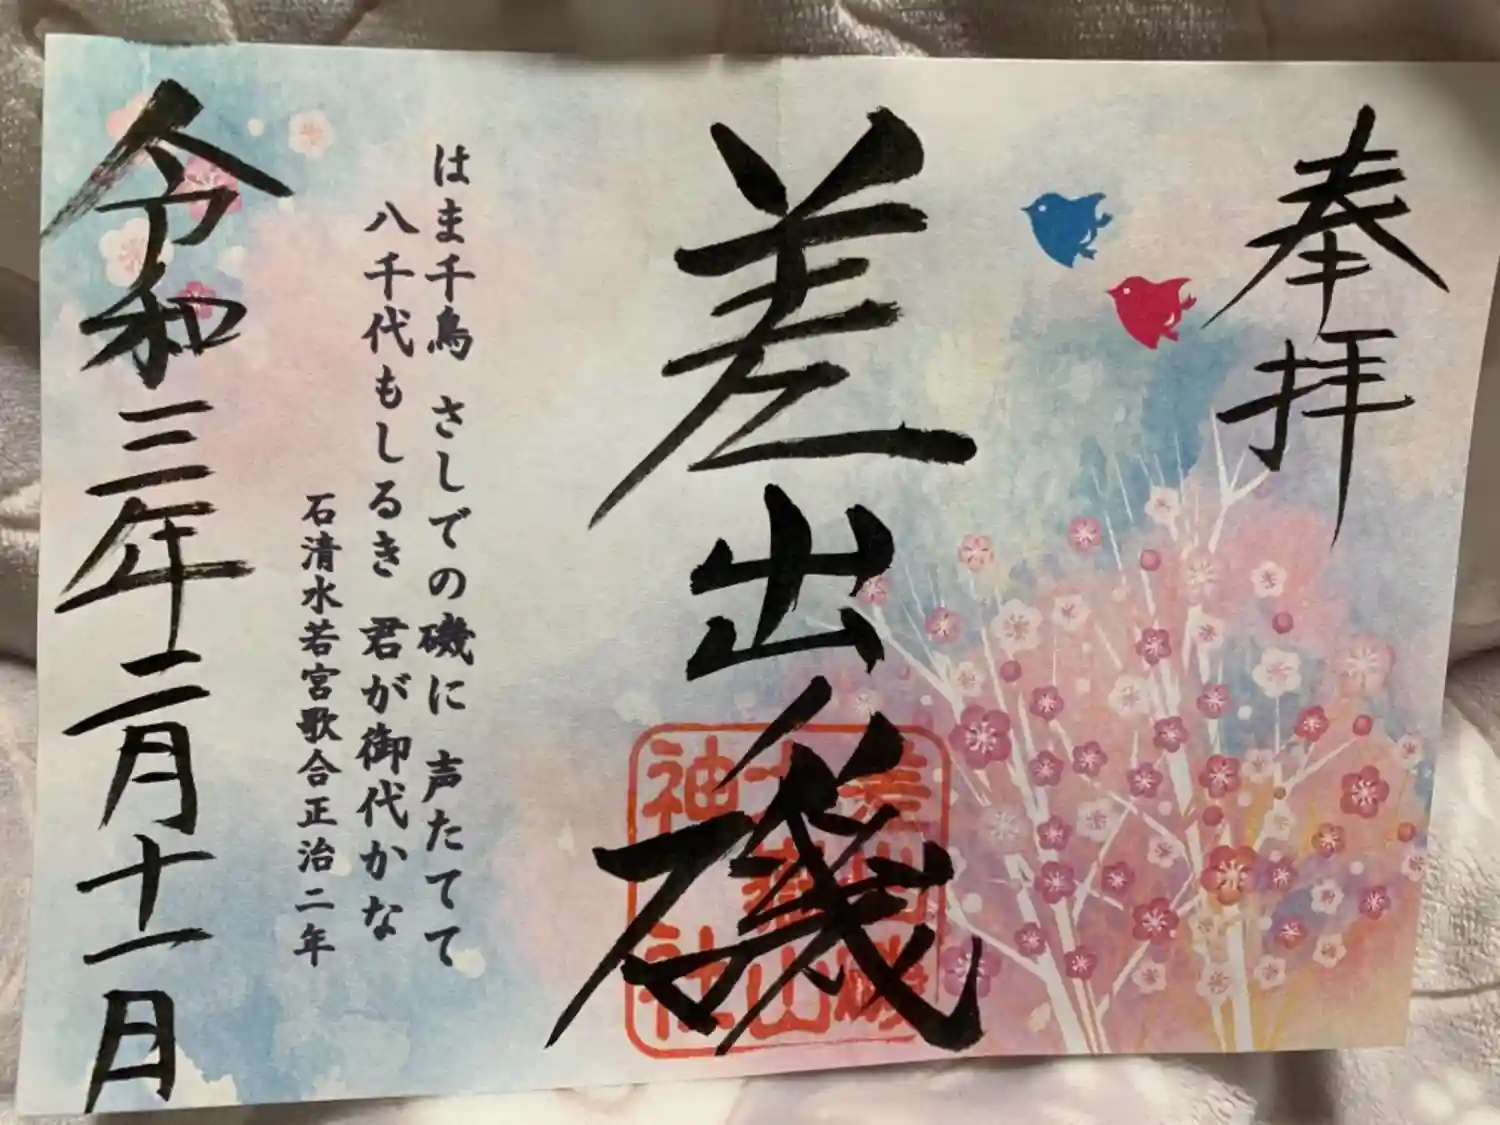 奉拝
差出磯
差出磯
大嶽山
神社
はま千鳥 さしでの磯に 声たてて
八千代もしるき 君が御代かな
石清水若宮歌合正治二年
令和三年二月十一月